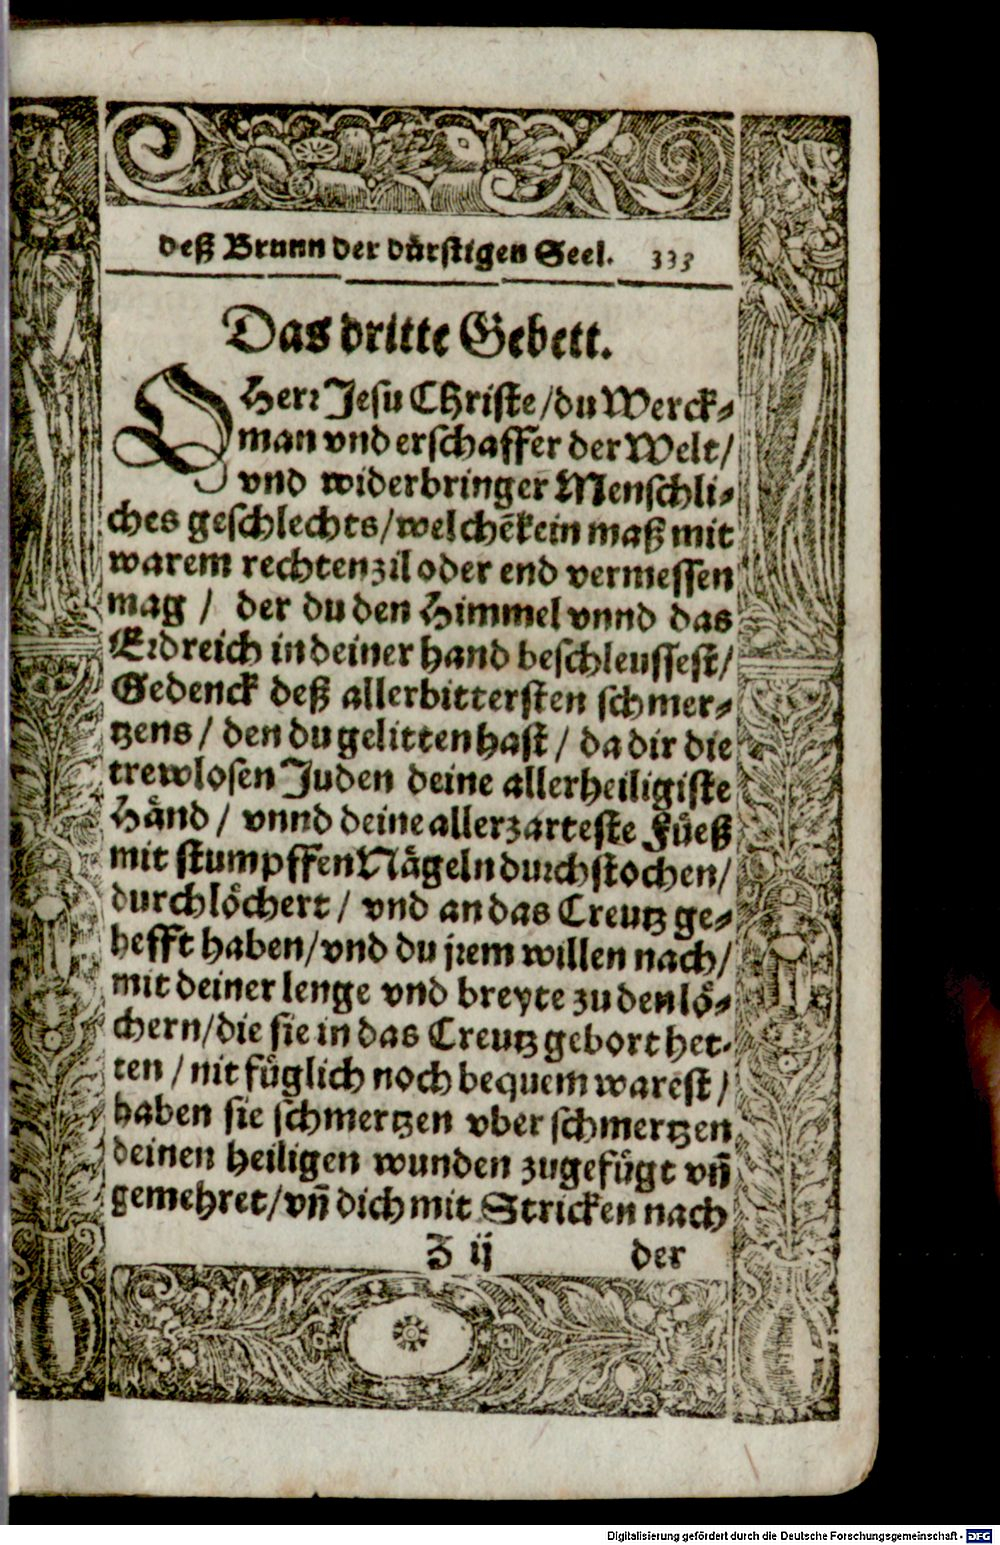 deß Brunn der dürstigen Seel. 333
Das dritte Gebett.
O Herr Jesu Christe / du Werck-
man vnd erschaffer der Welt /
vnd widerbringer Menschli-
ches geschlechts / welchē kein maß mit
warem rechten zil oder end vermessen
mag / der du den Himmel vnnd das
Erdreich in deiner hand beschleussest /
Gedenck deß allerbittersten schmer-
tzens / den du gelitten hast / da dir die
trewlosen Juden deine allerheiligiste
Händ / vnnd deine allerzarteste Füeß
mit stumpffen Nägeln durchstochen /
durchlöchert / vnd an das Creutz ge-
hefft haben / vnd du jrem willen nach /
mit deiner lenge vnd breyte zu den lö-
chern / die sie in das Creutz gebort het-
ten / nit füglich noch bequem warest /
haben sie schmertzen vber schmertzen
deinen heiligen wunden zugefügt vñ
gemehret / vñ dich mit Stricken nach
Z ij der
Digitalisierung gefördert durch die Deutsche Forschungsgemeinschaft - DFG